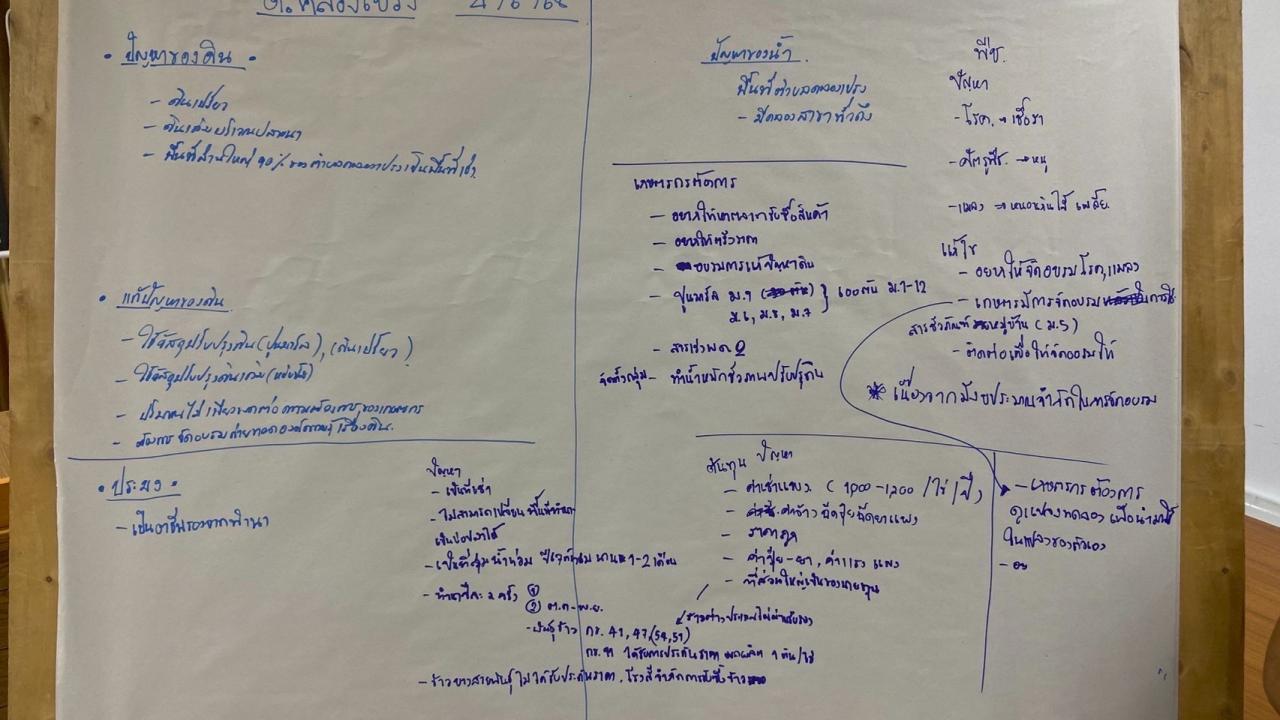 ต.คลองเปรง
• ปัญหาของดิน •
- ดินเปรี้ยว
- ดินเค็มบริเวณปลาดนา
- พื้นที่ส่วนใหญ่ 90% ของตำบลคลองเปรงเป็นพื้นที่เช่า
• แก้ปัญหาของดิน
- ใช้วัสดุปรับปรุงดิน (ปูนมาร์ล), (ดินเปรี้ยว)
- ใช้วัสดุปรับปรุงดินเค็ม
- ปริมาณไม่เพียงพอต่อความต้องการของเกษตรกร
- ต้องการจัดอบรมถ่ายทอดองค์ความรู้เรื่องดิน
• ประมง •
- เป็นอาชีพรองจากทำนา
ปัญหา
- เป็นที่เช่า
- ไม่สามารถเปลี่ยนพื้นที่ทำนา
เป็นบ่อปลาได้
- เป็นที่ลุ่มน้ำท่วม นาน 1-2 เดือน
- ทำนาปีละ 2 ครั้ง ①
② ต.ค-พ.ย.
- พันธุ์ข้าว กข. 41, 47, (54, 57)
ได้รับการประกันราคา ผลผลิต 1 ตัน/ไร่
- ข้าวบางสายพันธุ์ไม่ได้รับประกันราคา, โรงสีจำกัดการรับซื้อข้าว
ปัญหาของน้ำ
พื้นที่ตำบลคลองเปรง
- มีคลองสาขาทั่วถึง
เกษตรกรต้องการ
- อยากให้หาตลาดมารับซื้อสินค้า
- อบรมการแก้ปัญหาดิน
- ปูนมาร์ล ม.9 } 600 ตัน ม.1-12
ม.6, ม.8, ม.7
- สารเร่ง พด 2
จัดตั้งกลุ่ม - ทำน้ำหมักชีวภาพปรับปรุงดิน
พืช
ปัญหา
- โรค → เชื้อรา
- ศัตรูพืช → หนู
- แมลง → หนอนกินใบ เพลี้ย
แก้ไข
- อยากให้จัดอบรม โรค, แมลง
- เกษตรมีการจัดอบรมในการใช้
สารชีวภัณฑ์ หมู่บ้าน (ม.5)
- ติดต่อเพื่อให้จัดอบรมให้
* เนื่องจากมีงบประมาณจำกัดในการจัดอบรม
ต้นทุน ปัญหา
- ค่าเช่าแพง (1,000-1,200/ไร่/ปี)
- ค่าจ้างฉีดปุ๋ยฉีดยาแพง
- ราคาถูก
- ค่าปุ๋ย-ยา, ค่าแรง แพง
- ที่ส่วนใหญ่เป็นของนายทุน
- เกษตรกรต้องการ
ดูแปลงทดลอง เพื่อนำมาใช้
ในแปลงของตัวเอง